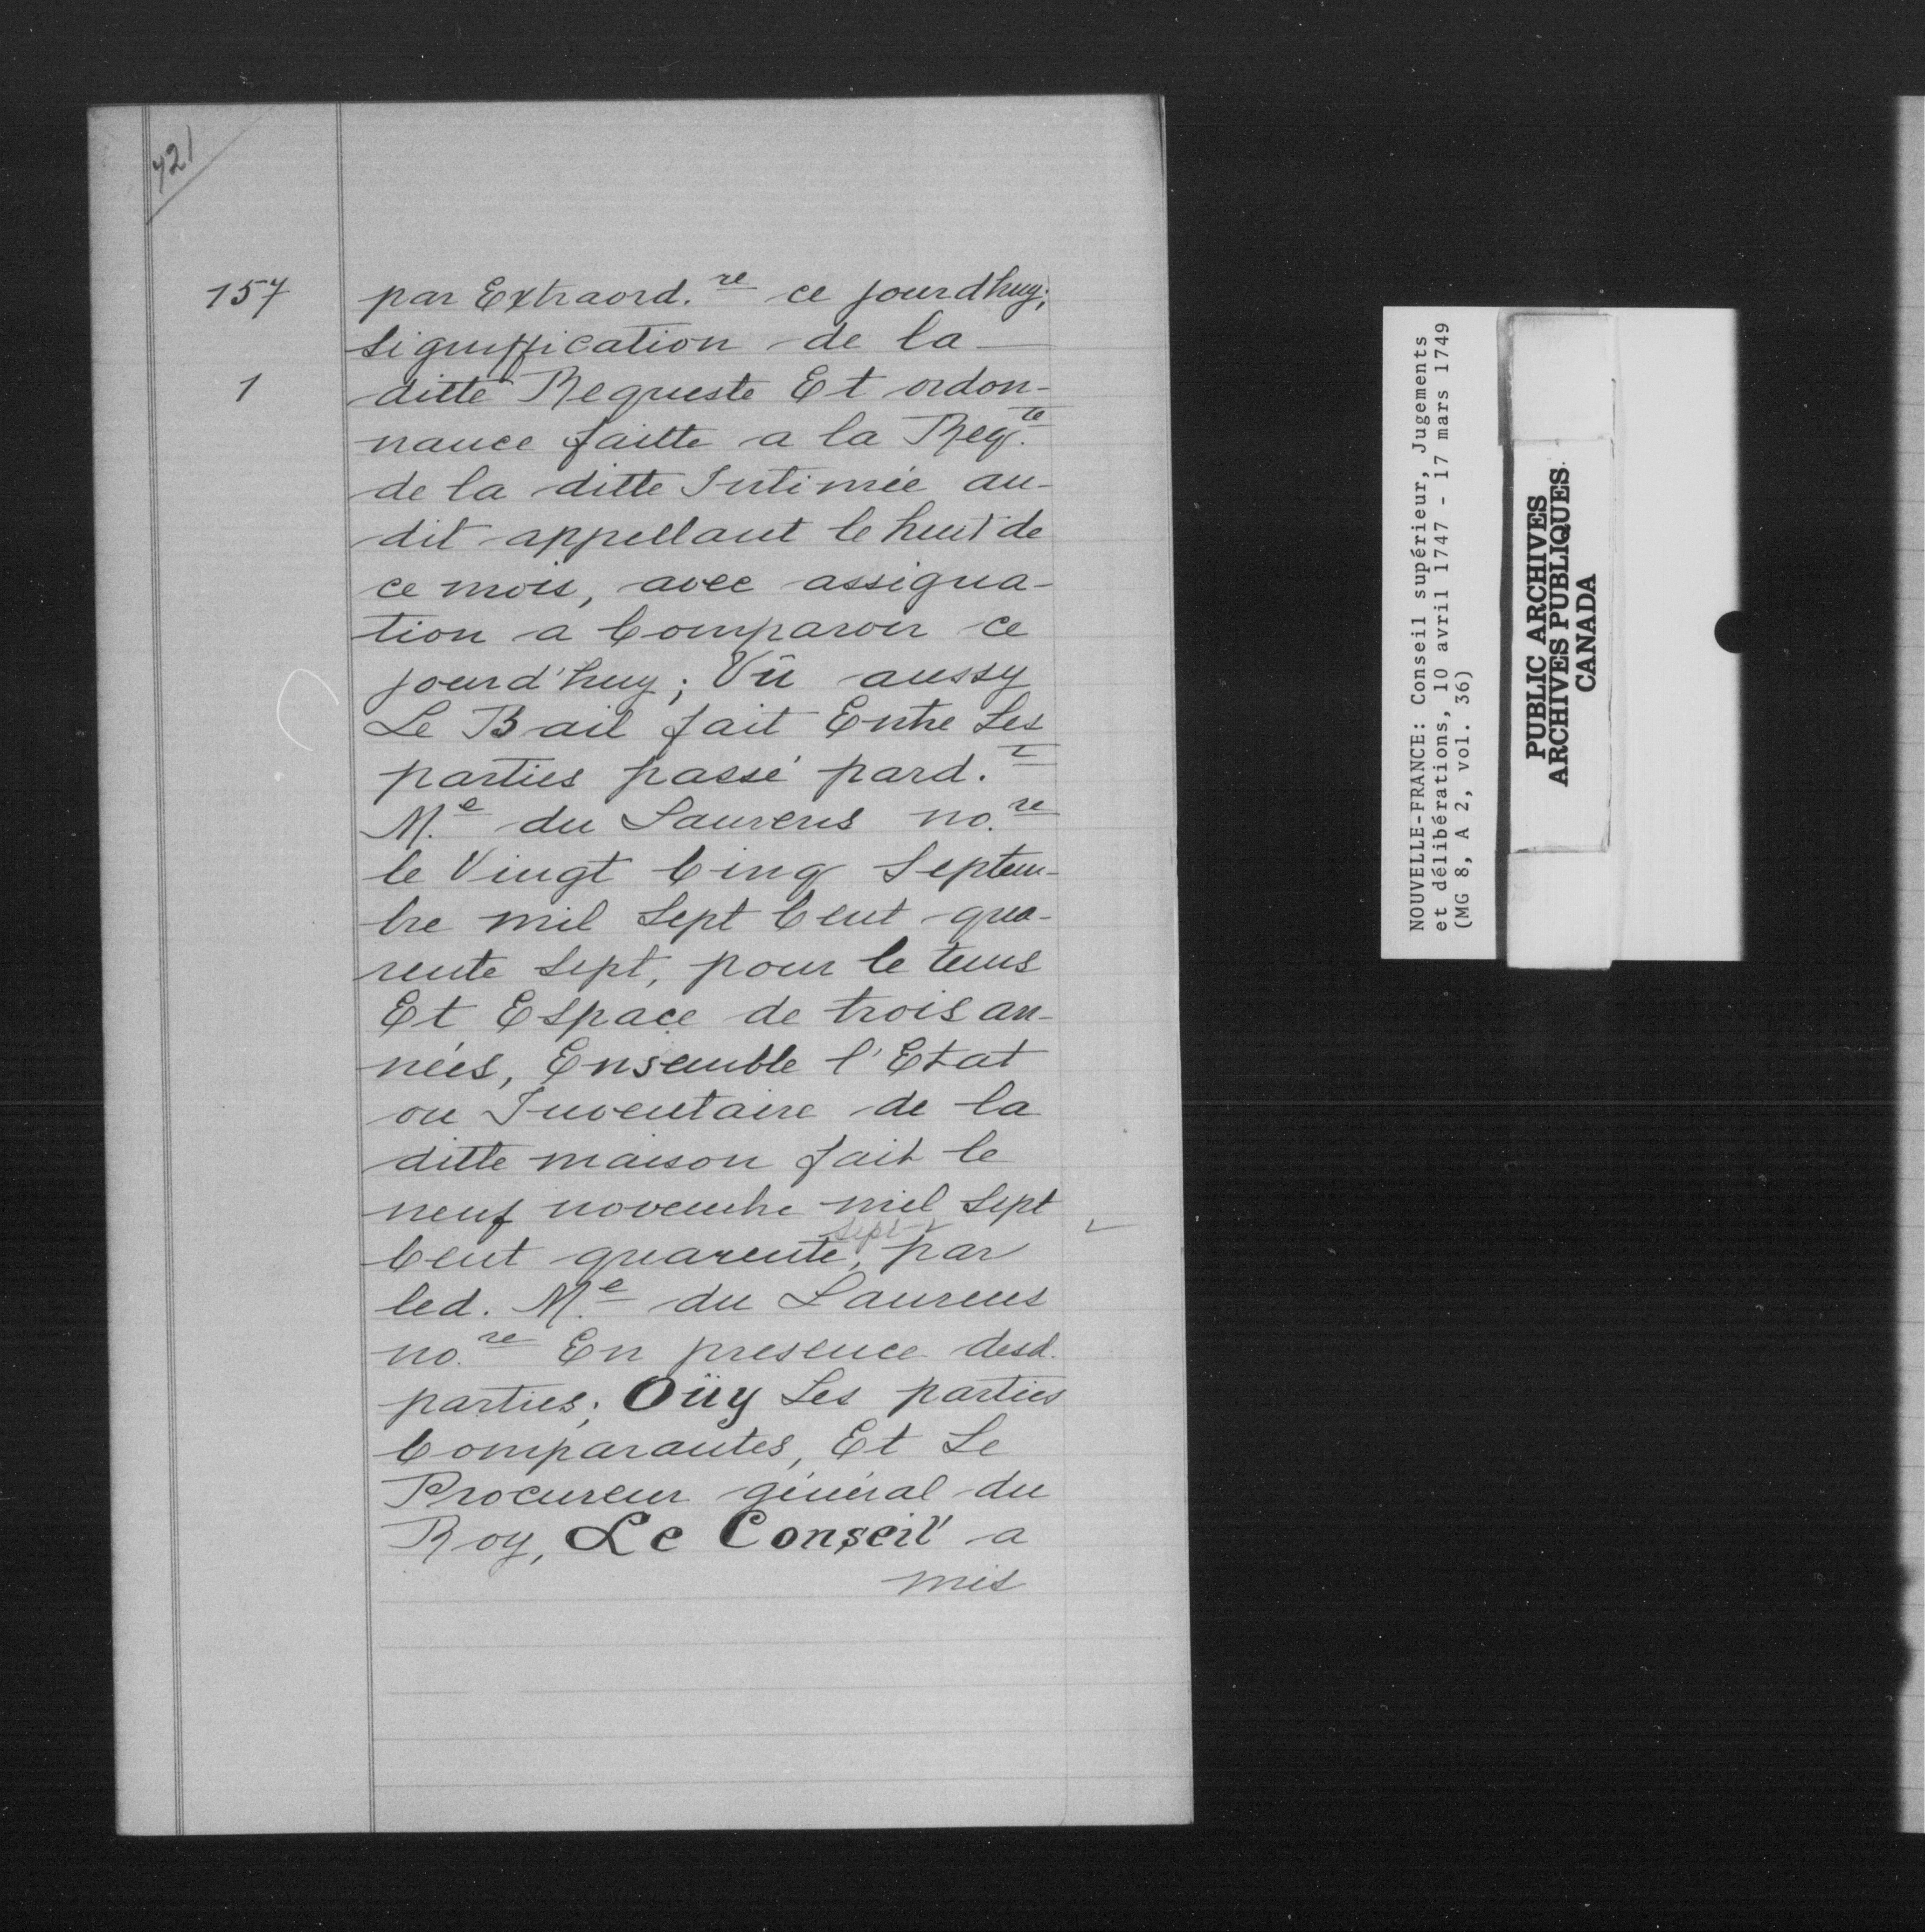 421
157
1
par Extraord.re ce jourdhuy;
signiffication de la
ditte Requeste Et ordon-
nance faitte a la Req.te
de la ditte Intimée au-
dit appellant le huit de
ce mois, avec assigna-
tion a Comparoir ce
jourd'huy; Vû aussy
Le Bail fait Entre Les
parties passé pard.t
M.e du Laurens no.re
le Vingt Cinq Septem-
bre mil Sept Cent qua-
rente Sept, pour le tems
Et Espace de trois an-
nées, Ensemble l'Etat
ou Inventaire de la
ditte maison fait le
neuf novembre mil Sept
Cent quarente sept, par
led. M.e du Laurens
no.re En presence desd.
parties; Oüy Les parties
Comparantes, Et Le
Procureur général du
Roy, Le Conseil a
mis
NOUVELLE-FRANCE: Conseil supérieur, Jugements
et délibérations, 10 avril 1747 - 17 mars 1749
(MG 8, A 2, vol. 36)
PUBLIC ARCHIVES
ARCHIVES PUBLIQUES
CANADA